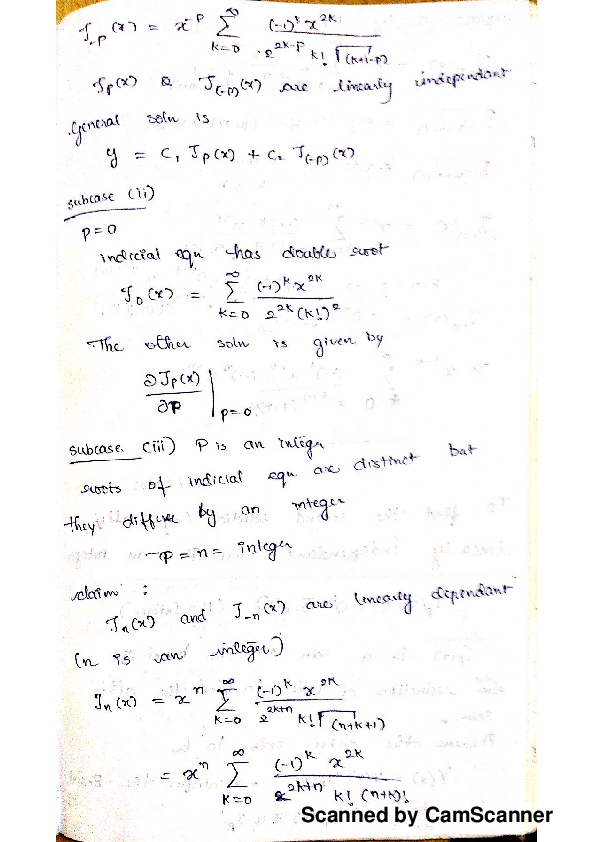 J_{-p}(x) = x^{-p} \sum_{k=0}^{\infty} \frac{(-1)^k x^{2k}}{2^{2k-p} k! \Gamma(k+1-p)}
J_p(x) & J_{(-p)}(x) are linearly independant
General soln is
y = C_1 J_p(x) + C_2 J_{(-p)}(x)
subcase (ii)
p=0
indicial equ has double root
J_0(x) = \sum_{k=0}^{\infty} \frac{(-1)^k x^{2k}}{2^{2k} (k!)^2}
The other soln is given by
\frac{\partial J_p(x)}{\partial p} |_{p=0}
subcase (iii) P is an integer
roots of indicial equ are distinct but
they differ by an integer
p = n = integer
claim :
J_n(x) and J_{-n}(x) are linearly dependant
(n is an integer)
J_n(x) = x^n \sum_{k=0}^{\infty} \frac{(-1)^k x^{2k}}{2^{2k+n} k! \Gamma(n+k+1)}
= x^n \sum_{k=0}^{\infty} \frac{(-1)^k x^{2k}}{2^{2k+n} k! (n+k)!}
Scanned by CamScanner